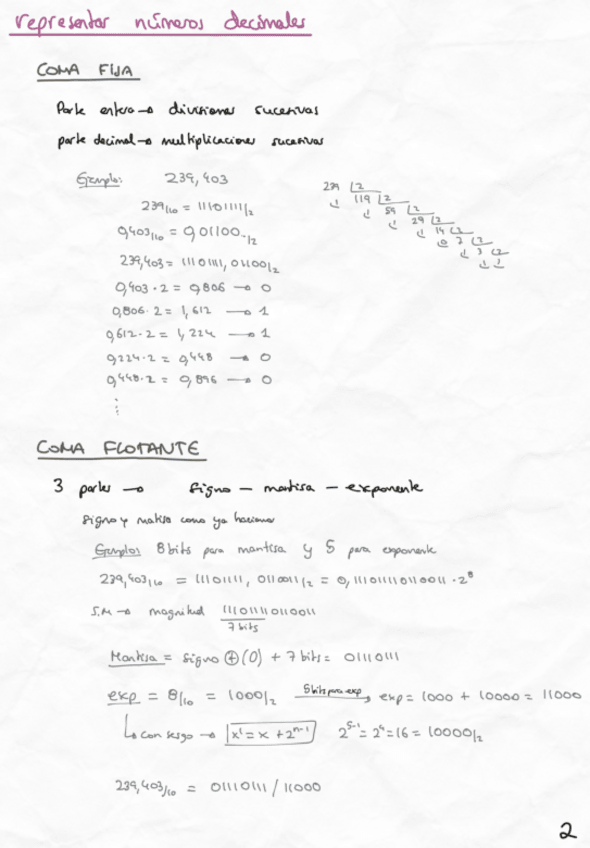 representar números decimales
COMA FIJA
Parte entera → divisiones sucesivas
parte decimal → multiplicaciones sucesivas
Ejemplo: 239,403
239/10 = 11101111/2
0,403/10 = 0,01100../2
239,403 = 11101111,01100/2
0,403·2 = 0,806 → 0
0,806·2 = 1,612 → 1
0,612·2 = 1,224 → 1
0,224·2 = 0,448 → 0
0,448·2 = 0,896 → 0
239 2
1 119 2
1 59 2
1 29 2
1 14 2
0 7 2
1 3 2
1 1
COMA FLOTANTE
3 partes → signo – mantisa – exponente
Signo y mantisa como ya hacíamos
Ejemplo: 8 bits para mantisa y 5 para exponente
239,403/10 = 11101111,0110011/2 = 0,111011110110011·2⁸
S.M → magnitud 111011110110011
7 bits
Mantisa = signo ⊕(0) + 7 bits = 01110111
exp = 8/10 = 1000/2 5 bits para exp → exp = 1000 + 10000 = 11000
con sesgo → x' = x + 2ⁿ⁻¹ 2⁵⁻¹ = 2⁴ = 16 = 10000/2
239,403/10 = 01110111 / 11000
2